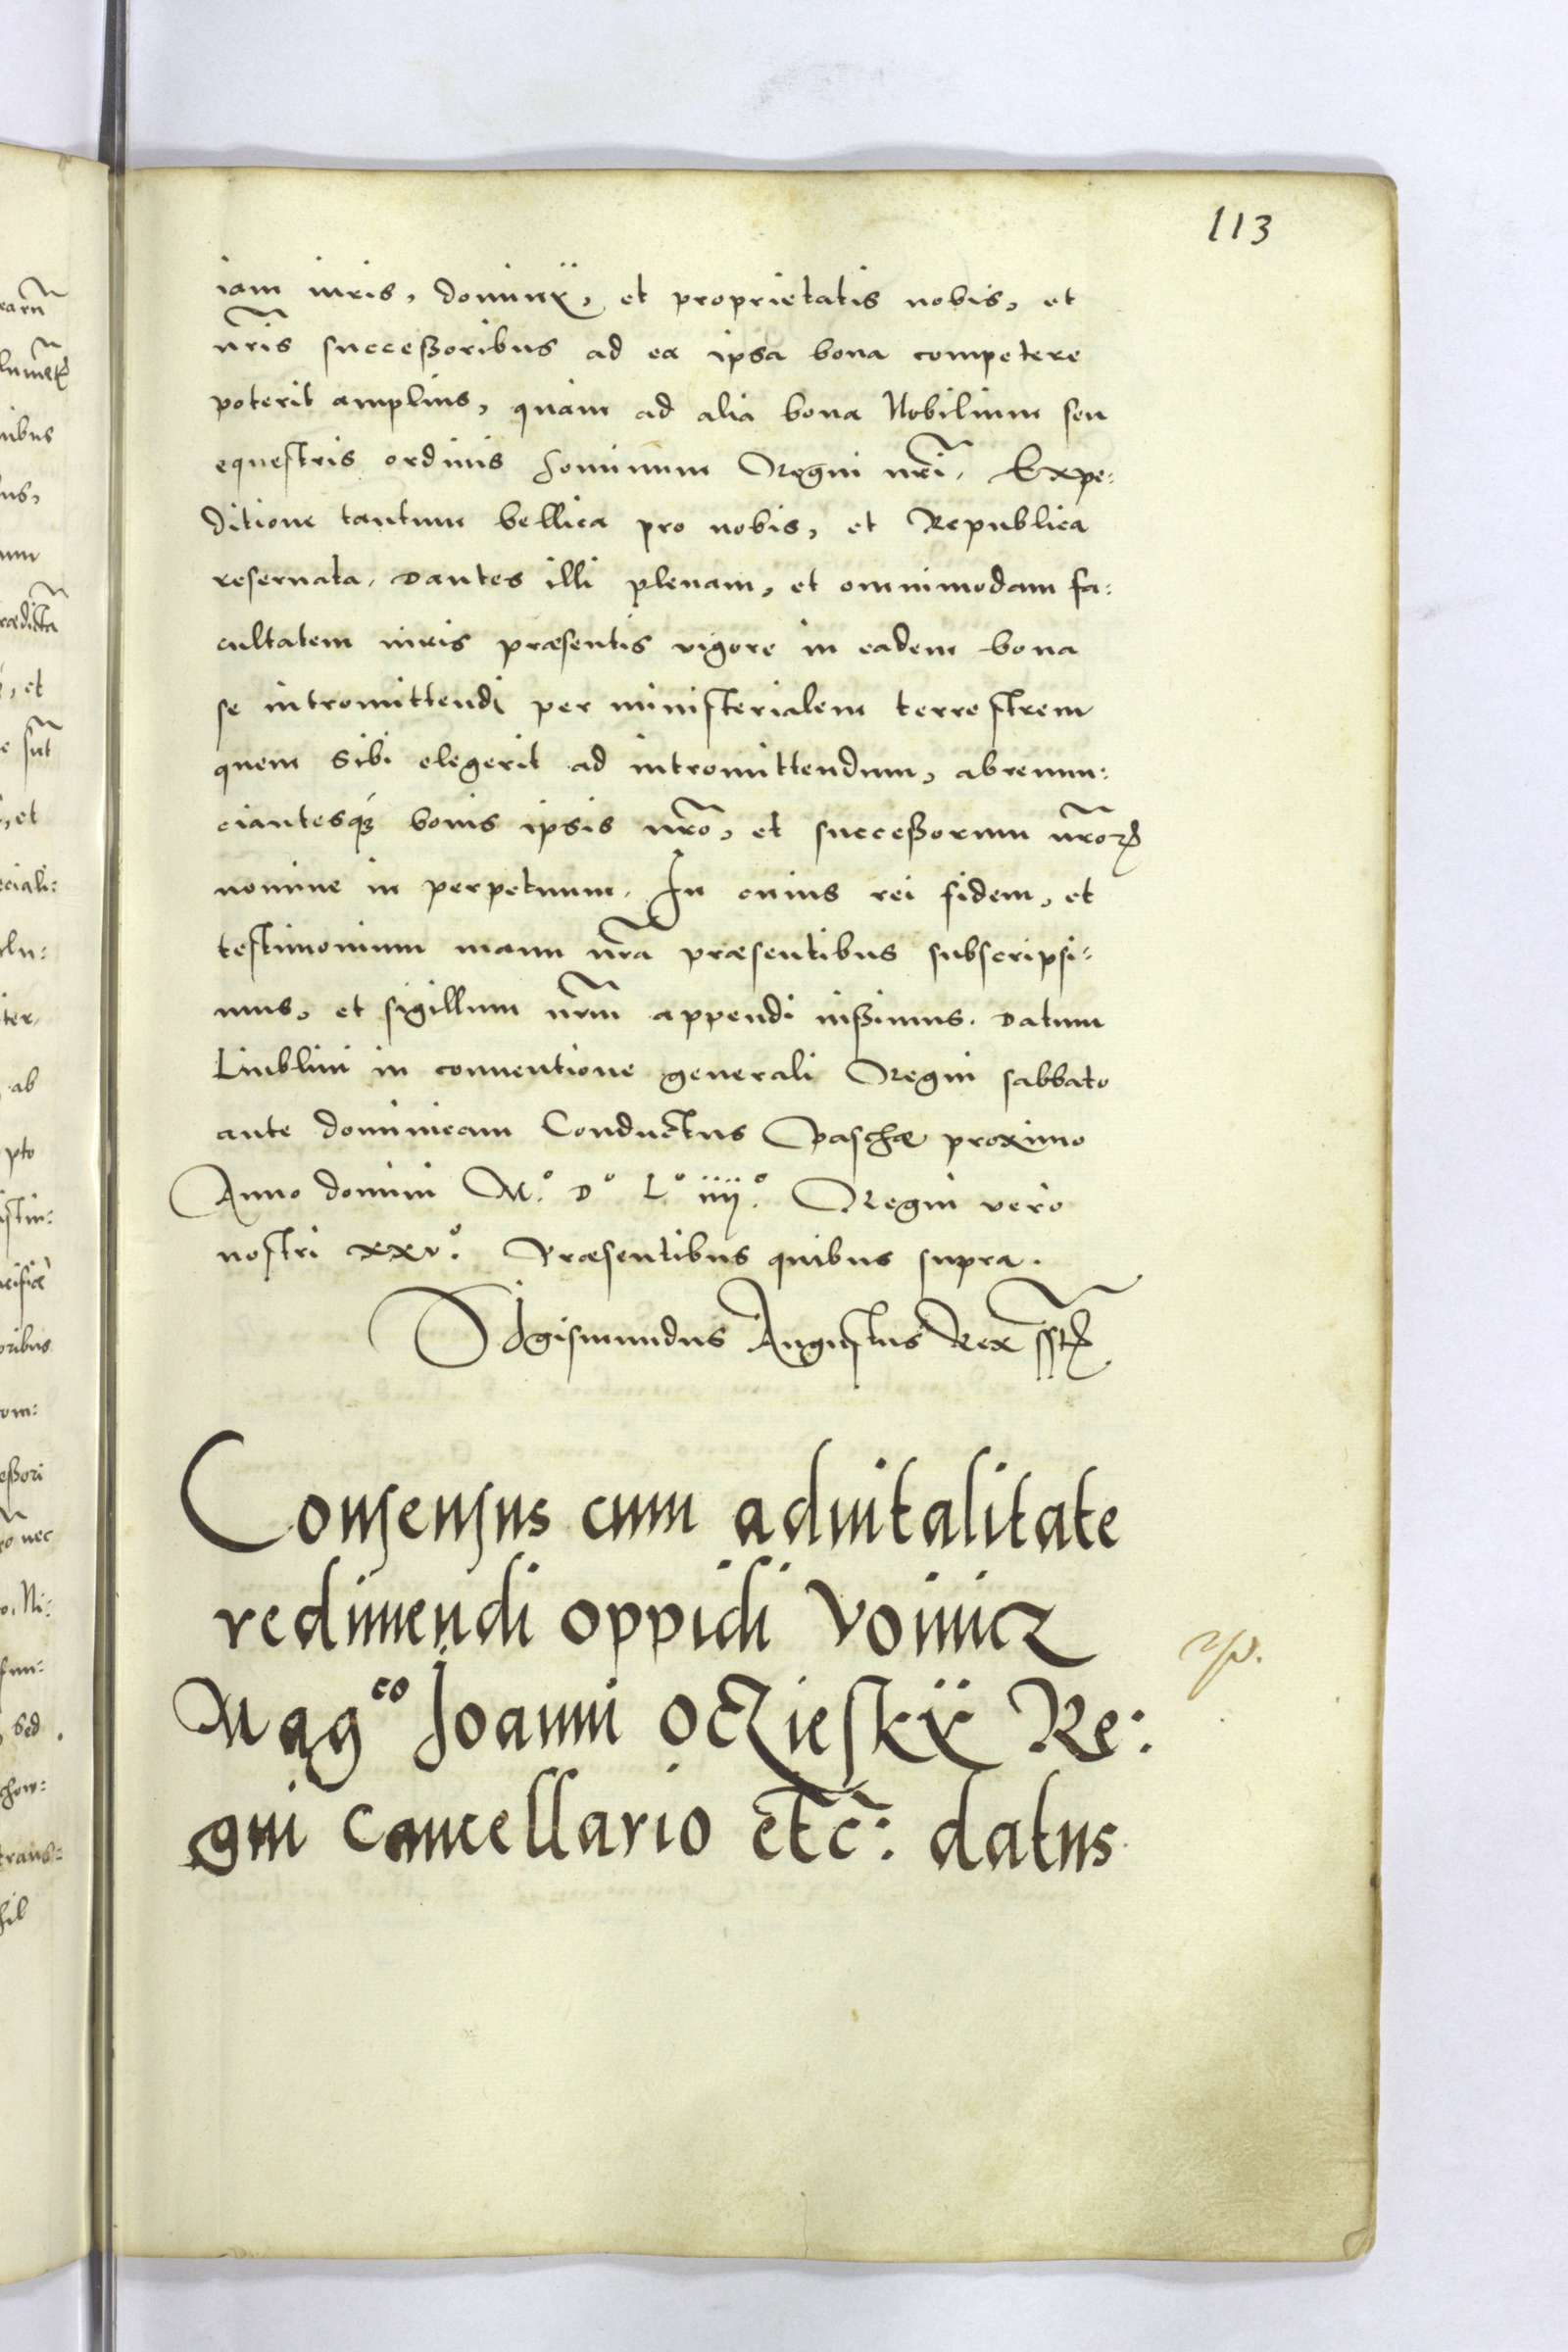 113
iam iuris, dominÿ, et proprietatis nobis, et
nr̃is succeßoribus ad ea ipsa bona competere
poterit amplius, quam ad alia bona Nobilium seu
equestris ordinis hominum Regni nr̃i. Expe:
ditione tantum bellica pro nobis, et Republica
reseruata. Dantes illi plenam, et omnimodam fa:
cultatem iuris præsentis vigore in eadem bona
se intromittendi per ministerialem terrestrem
quem sibi elegerit ad intromittendum, abrenun:
ciantesqꝫ bonis ipsis nr̃o, et succeßorum nr̃oꝝ
nomine in perpetuum. In cuius rei fidem, et
testimonium manu nr̃a præsentibus subscripsi:
mus, et sigillum nr̃m appendi iußimus. Datum
Liublini in conuentione generali Regni sabbato
ante dominicam Conductus Paschæ proximo
Anno domini M.° D° L° iiij.° Regni vero
nostri xxv.° Præsentibus quibus supra.
Sigismundus Augustus Rex sst
Consensus cum aduitalitate
redimendi oppidi Voinicz
Mag^co Joanni Oczieskÿ Re:
gni Cancellario etc̃: datus